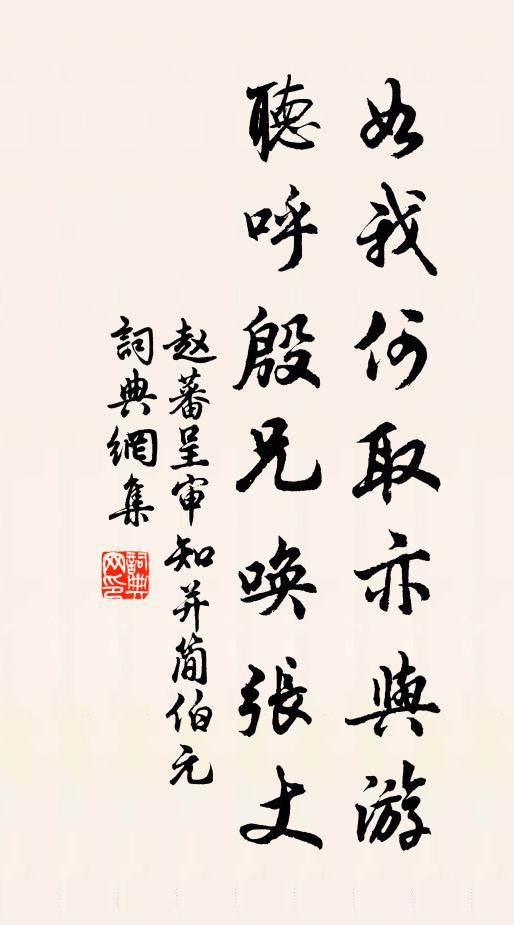 如我何取亦與游
聽呼殷兄喚張丈
赵蕃呈审知并简伯元
詞典網集
詞典網印